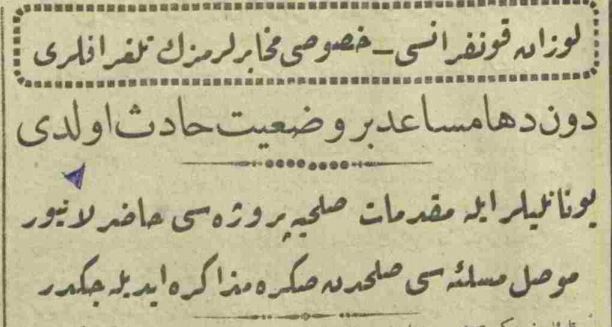 لوزان قونفرانسى ـ خصوصى مخابرلرمزك تلغرافلرى
دون دها مساعد بر وضعيت حادث اولدى
يونانليلر ايله مقدمات صلحيه پروژه سى حاضرلانيور
موصل مسئله سى صلحدن صكره مذاكره ايديله جكدر